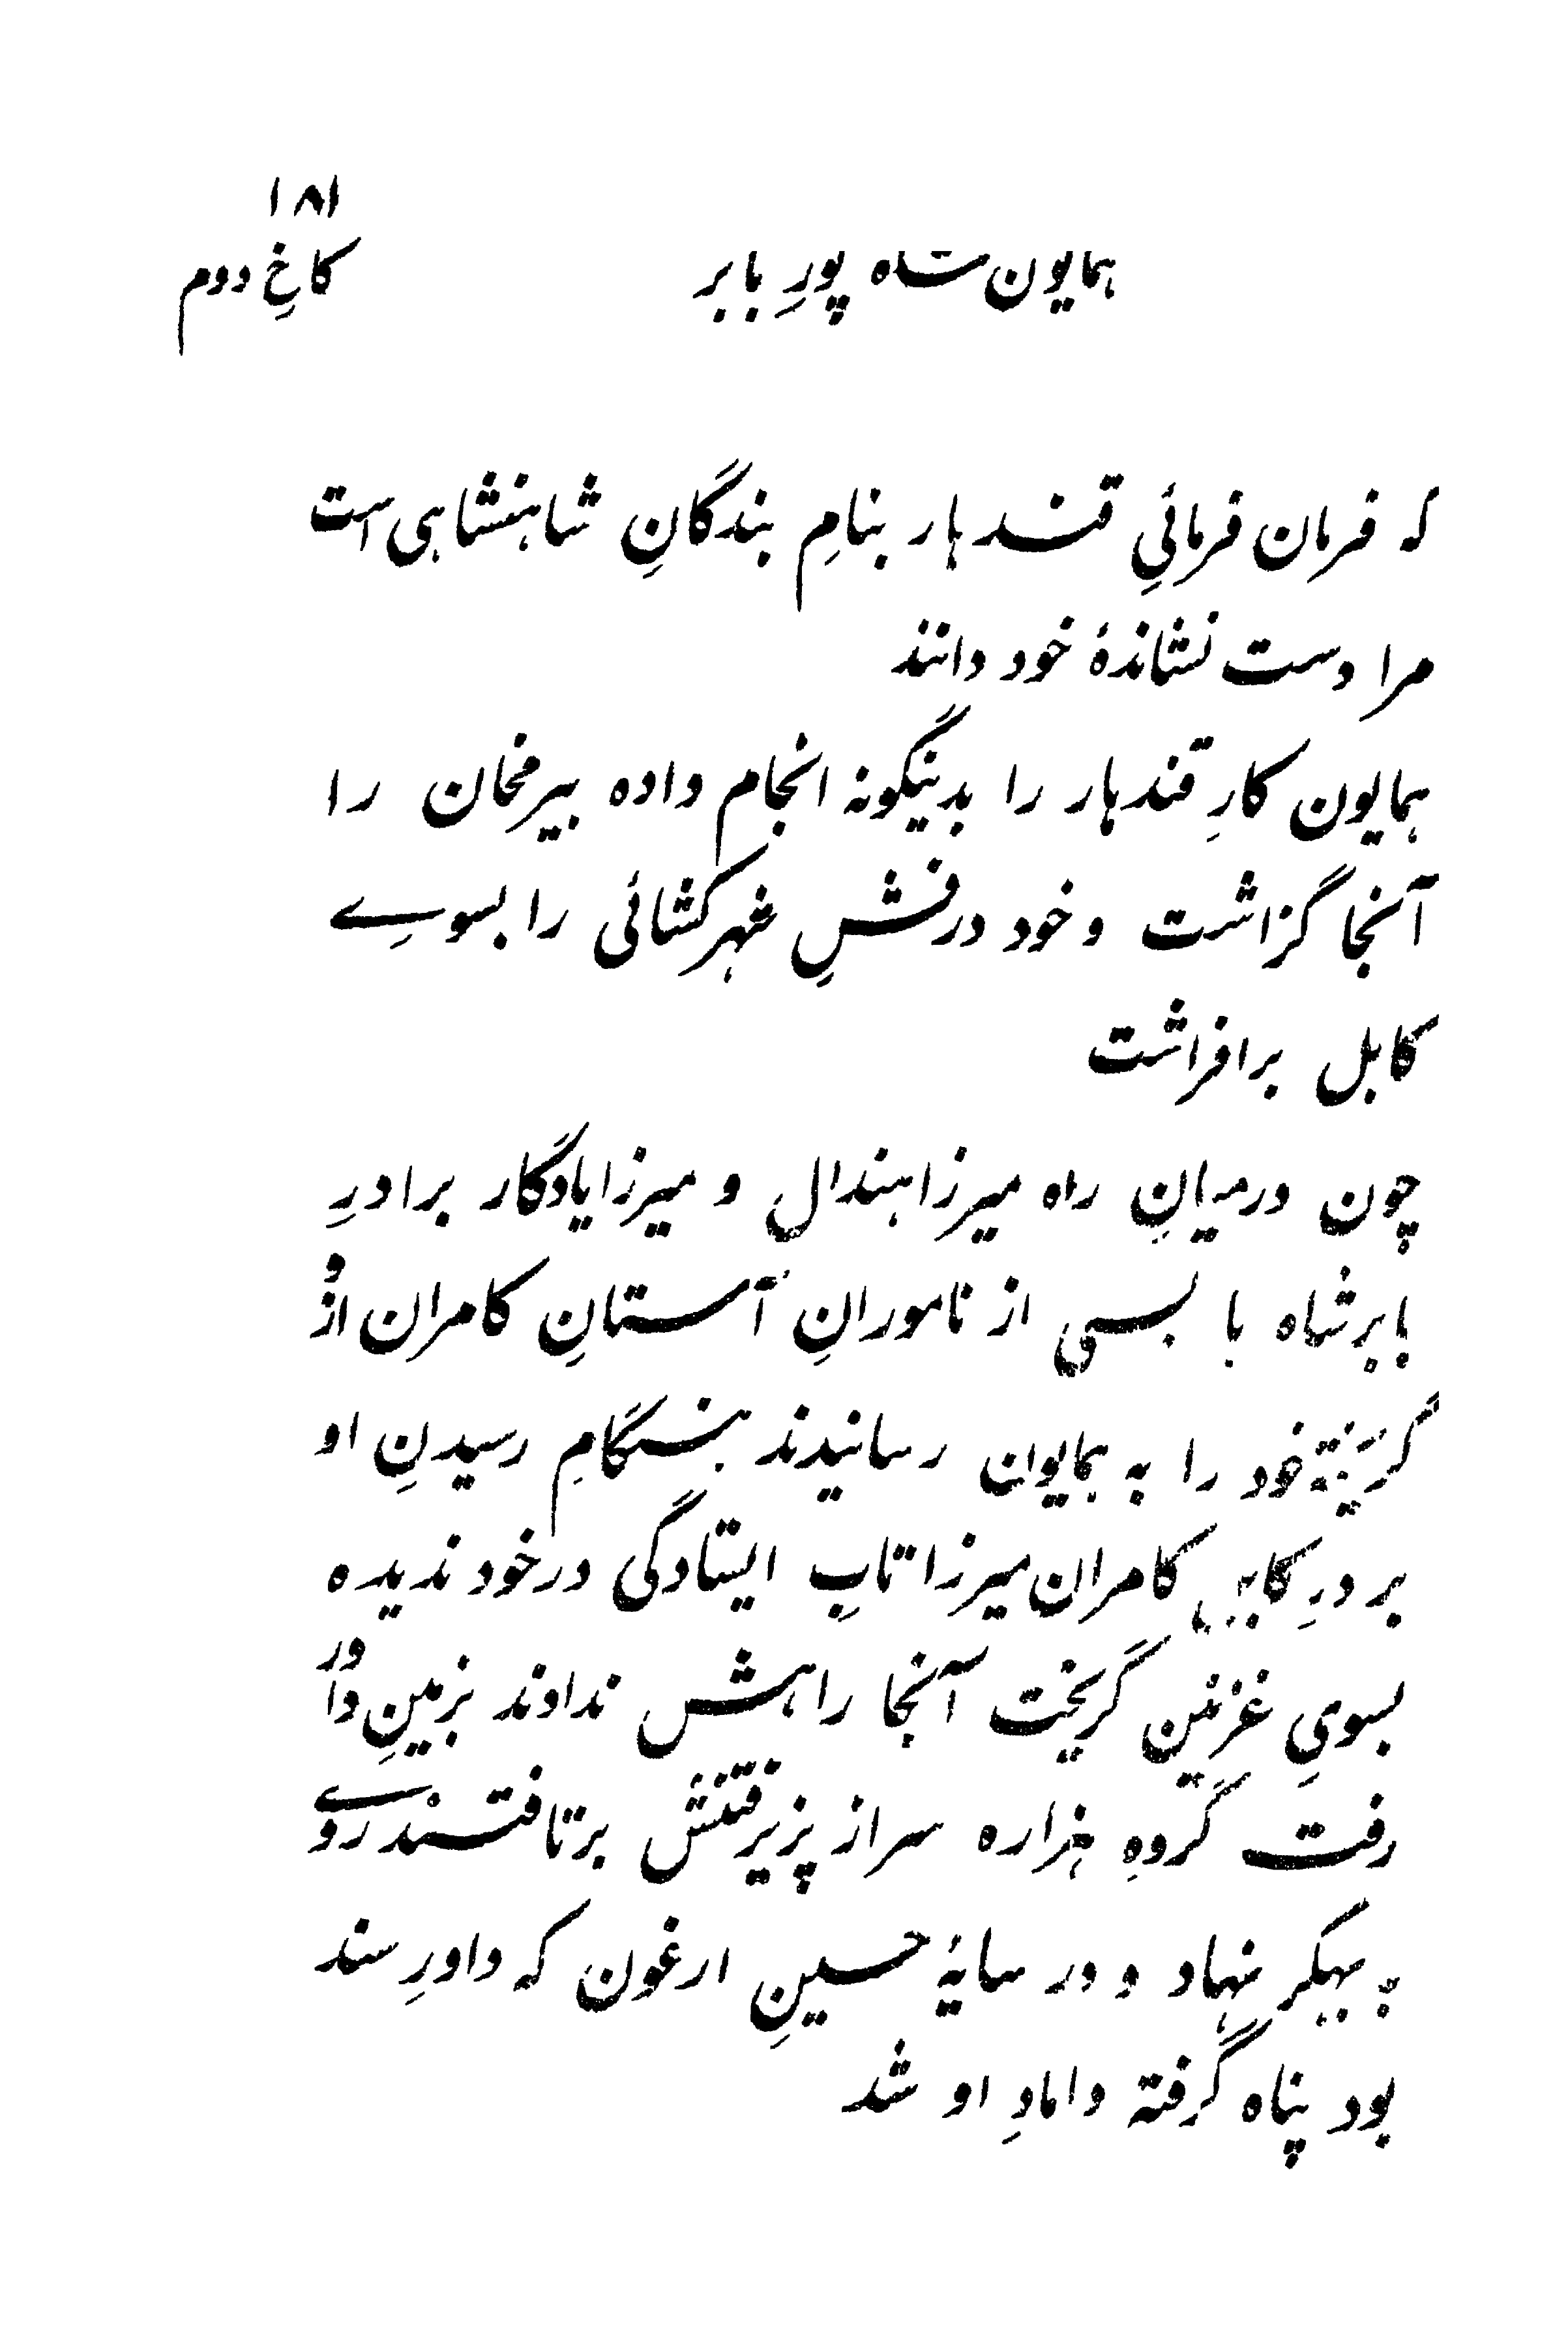 ۱۸۱
همایون شاه پورِ بابر
کاخِ دوم
که فرمان فرمائیِ قندهار بنامِ بندگانِ شاهنشاهی است
مرا دست نشاندهٔ خود دانند
همایون کارِ قندهار را بدینگونه انجام داده بیرمخان را
آنجا گزاشت و خود درفشِ شهرکشائی را بسوے
کابل برافراشت
چون درمیانِ راه میرزا هندال و میرزا یادگار برادرِ
بابرشاه با بسی از نامورانِ آستانِ کامران ازُو
گریخته خود را به همایون رسانیدند هنگامِ رسیدنِ او
بر درِ کابل کامران میرزا تابِ ایستادگی در خود ندیده
بسویِ غزنین گریخت آنجا راهش ندادند بزمینِ داور
رفت گروهِ هزاره سر از پزیرفتنش برتافتند روے
به بهکر نهاد و در سایهٔ حسینِ ارغون که داورِ سند
بود پناه گرفته دامادِ او شد